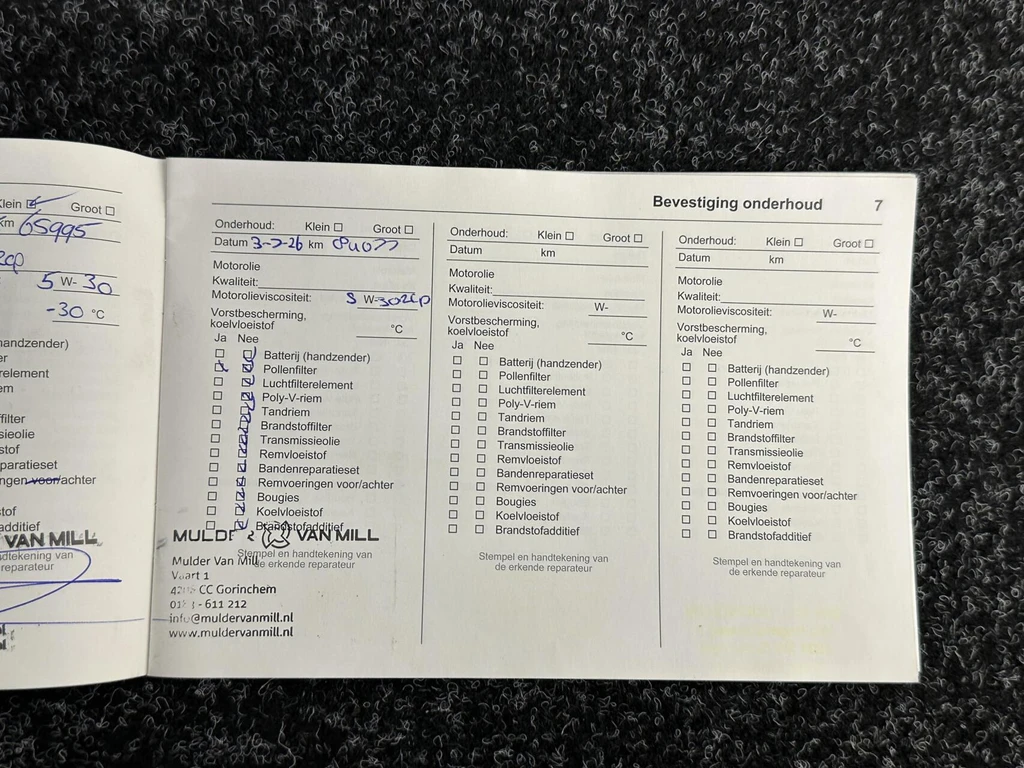 Klein Groot
km 65995
5 W- 30
-30 °C
handzender)
relement
filter
ssieolie
stof
paratieset
ngen voor/achter
stof
additief
VAN MILL
dtekening van
reparateur
Bevestiging onderhoud 7
Onderhoud: Klein Groot
Datum km
Motorolie
Kwaliteit:
Motorolieviscositeit: 5 W-30
Vorstbescherming,
koelvloeistof °C
Ja Nee
Batterij (handzender)
Pollenfilter
Luchtfilterelement
Poly-V-riem
Tandriem
Brandstoffilter
Transmissieolie
Remvloeistof
Bandenreparatieset
Remvoeringen voor/achter
Bougies
Koelvloeistof
Brandstofadditief
MULDER VAN MILL
Stempel en handtekening van
de erkende reparateur
Mulder Van Mill
Vaart 1
CC Gorinchem
- 611 212
info@muldervanmill.nl
www.muldervanmill.nl
Onderhoud: Klein Groot
Datum km
Motorolie
Kwaliteit:
Motorolieviscositeit: W-
Vorstbescherming,
koelvloeistof °C
Ja Nee
Batterij (handzender)
Pollenfilter
Luchtfilterelement
Poly-V-riem
Tandriem
Brandstoffilter
Transmissieolie
Remvloeistof
Bandenreparatieset
Remvoeringen voor/achter
Bougies
Koelvloeistof
Brandstofadditief
Stempel en handtekening van
de erkende reparateur
Onderhoud: Klein Groot
Datum km
Motorolie
Kwaliteit:
Motorolieviscositeit: W-
Vorstbescherming,
koelvloeistof °C
Ja Nee
Batterij (handzender)
Pollenfilter
Luchtfilterelement
Poly-V-riem
Tandriem
Brandstoffilter
Transmissieolie
Remvloeistof
Bandenreparatieset
Remvoeringen voor/achter
Bougies
Koelvloeistof
Brandstofadditief
Stempel en handtekening van
de erkende reparateur